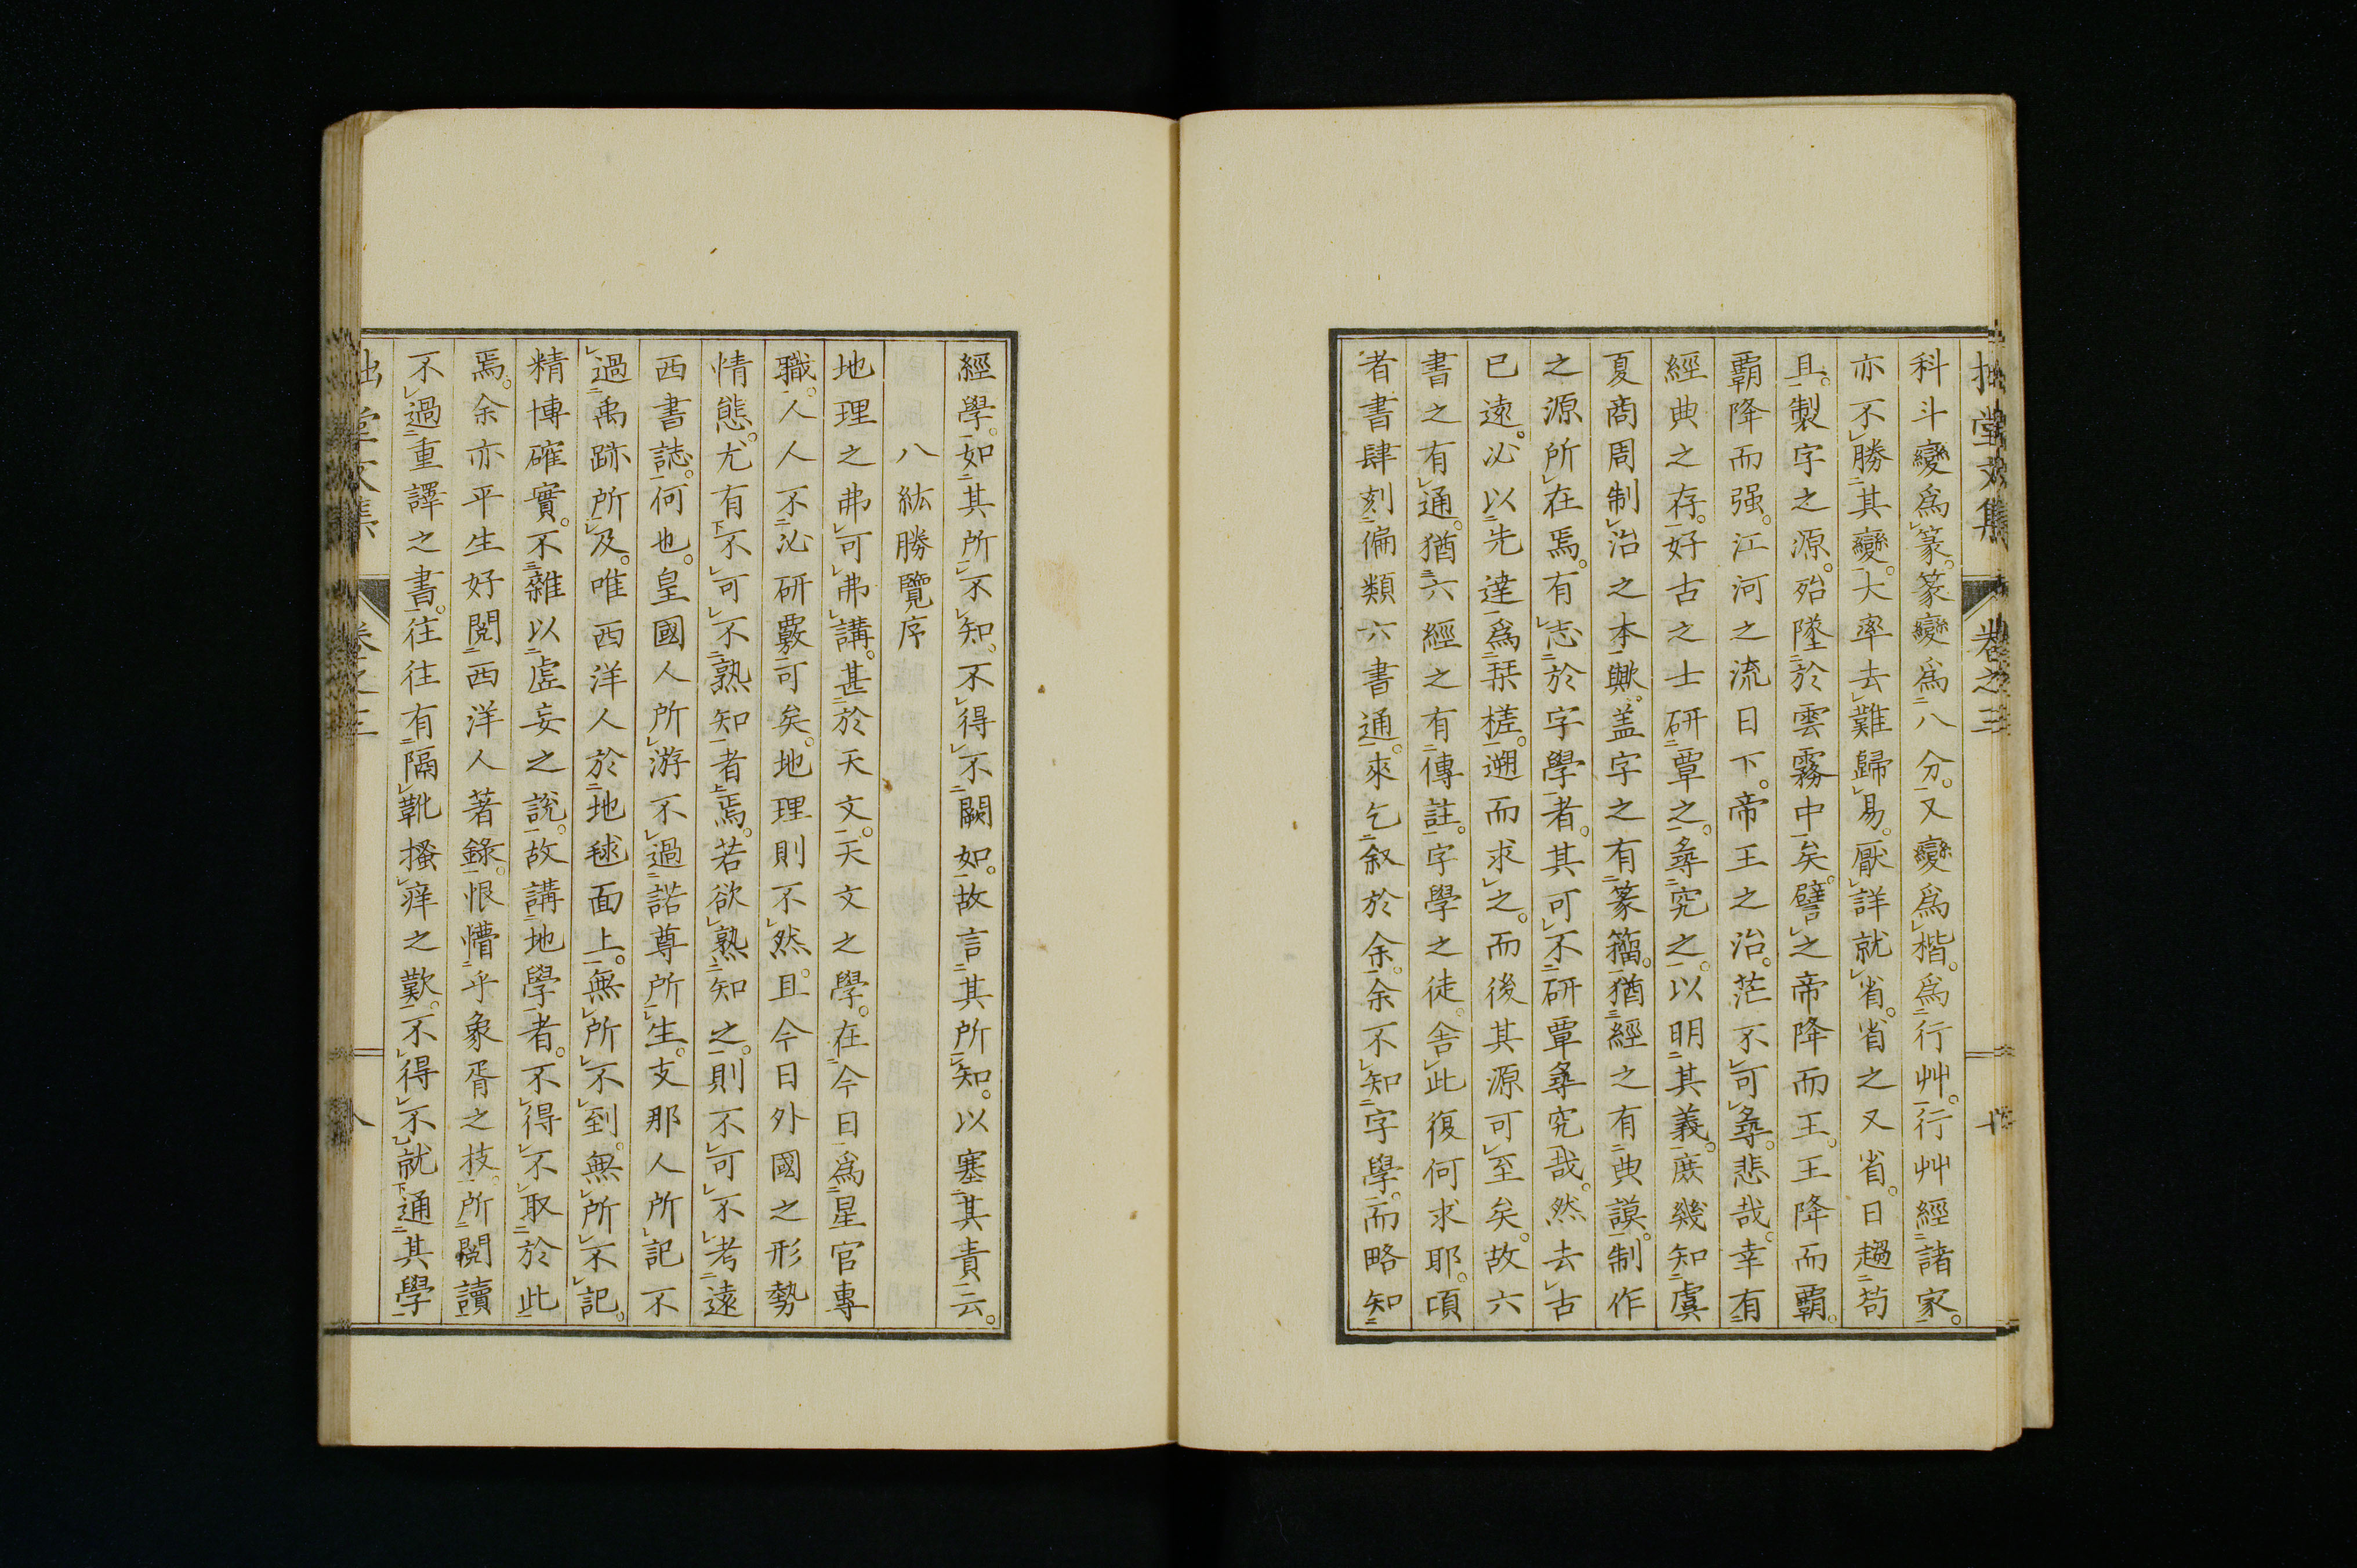 拙堂文集 卷之三
科斗變爲篆。篆變爲八分。又變爲楷。爲行艸。行艸經諸家。
亦不勝其變。大率去難歸易。厭詳就省。省之又省。日趨苟
且。製字之源。殆墜於雲霧中矣。譬之帝降而王。王降而覇。
覇降而强。江河之流日下。帝王之治。茫不可尋。悲哉。幸有
經典之存。好古之士研覃之。尋究之。以明其義。庶幾知虞
夏商周制治之本歟。盖字之有篆籀。猶經之有典謨。制作
之源所在焉。有志於字學者。其可不研覃尋究哉。然去古
已遠。必以先達爲栞槎。遡而求之。而後其源可至矣。故六
書之有通。猶六經之有傳註。字學之徒。舍此復何求耶。頃
者書肆刻偏類六書通。來乞叙於余。余不知字學。而略知
經學。如其所不知。不得不闕如。故言其所知。以塞其責云。
八紘勝覽序
地理之弗可弗講。甚於天文。天文之學。在今日爲星官專
職。人人不必研覈可矣。地理則不然。且今日外國之形勢
情態。尤有不可不熟知者焉。若欲熟知之。則不可不考遠
西書誌。何也。皇國人所游不過諾尊所生。支那人所記不
過禹跡所及。唯西洋人於地毬面上。無所不到。無所不記。
精博確實。不雜以虛妄之說。故講地學者。不得不取於此
焉。余亦平生好閱西洋人著錄。恨懵乎象胥之技。所閱讀
不過重譯之書。往往有隔靴搔痒之歎。不得不就通其學